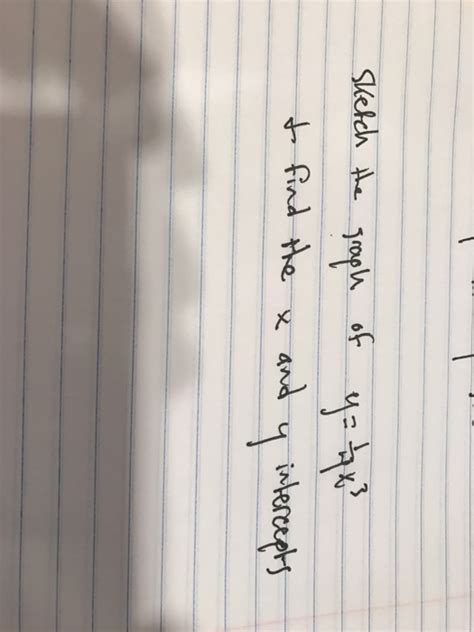 Sketch the graph of y = 1/3 x³
& find the x and y intercepts